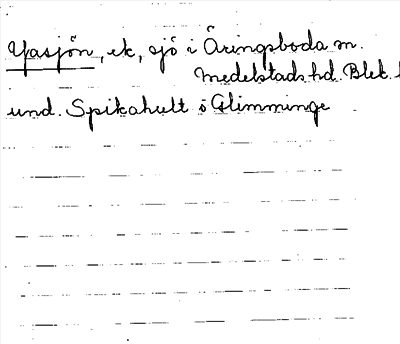 Yasjön, ek, sjö i Äringsboda sn.
Medelstads hd. Blek. l
und. Spikahult o Glimminge